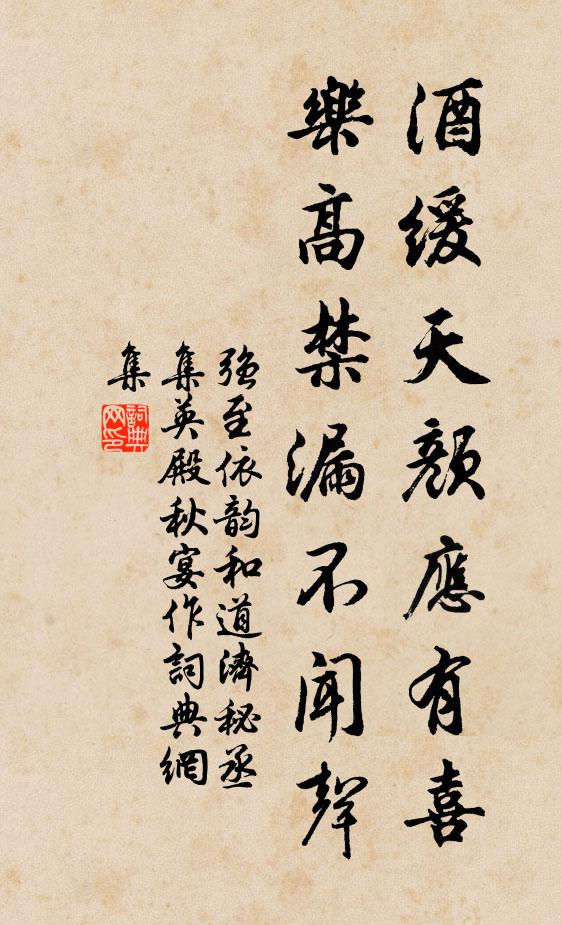 酒缓天颜應有喜
樂高禁漏不闻聲
强至依韵和道濟秘丞
集英殿秋宴作詞典網
集
詞典网印